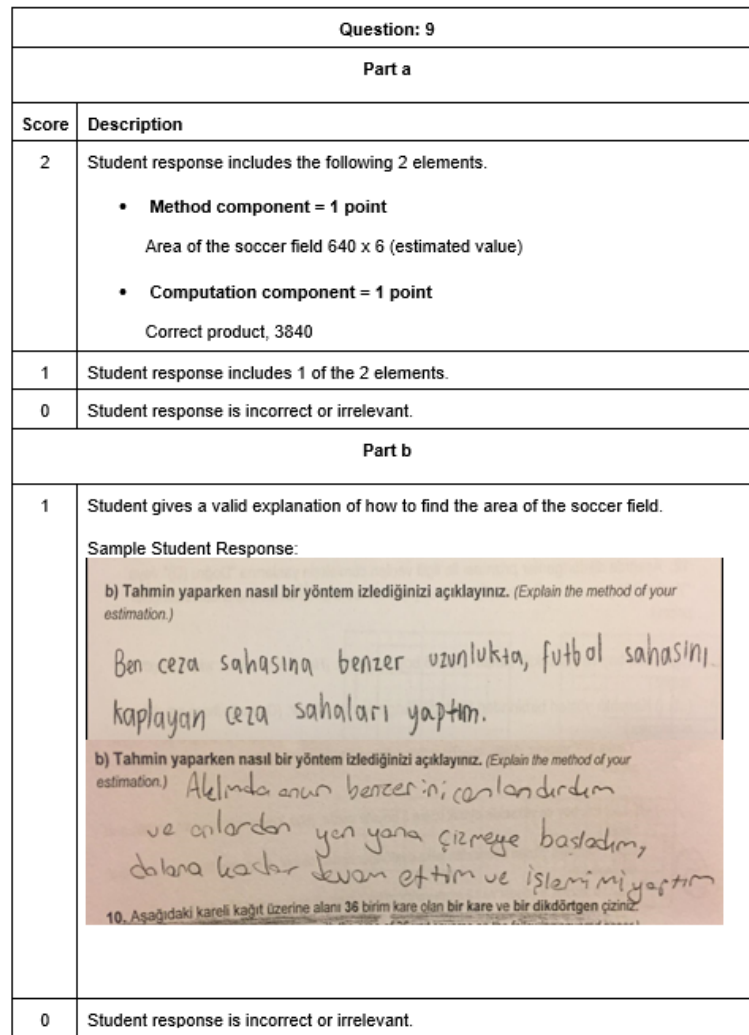 Question: 9
Part a
Score Description
2 Student response includes the following 2 elements.
• Method component = 1 point
Area of the soccer field 640 x 6 (estimated value)
• Computation component = 1 point
Correct product, 3840
1 Student response includes 1 of the 2 elements.
0 Student response is incorrect or irrelevant.
Part b
1 Student gives a valid explanation of how to find the area of the soccer field.
Sample Student Response:
b) Tahmin yaparken nasıl bir yöntem izlediğinizi açıklayınız. (Explain the method of your
estimation.)
Ben ceza sahasına benzer uzunlukta, futbol sahasını
kaplayan ceza sahaları yaptım.
b) Tahmin yaparken nasıl bir yöntem izlediğinizi açıklayınız. (Explain the method of your
estimation.) Aklımda onun benzerini canlandırdım
ve onlardan yan yana çizmeye başladım,
dolana kadar devam ettim ve işlemimi yaptım
10. Aşağıdaki kareli kağıt üzerine alanı 36 birim kare olan bir kare ve bir dikdörtgen çiziniz.
0 Student response is incorrect or irrelevant.